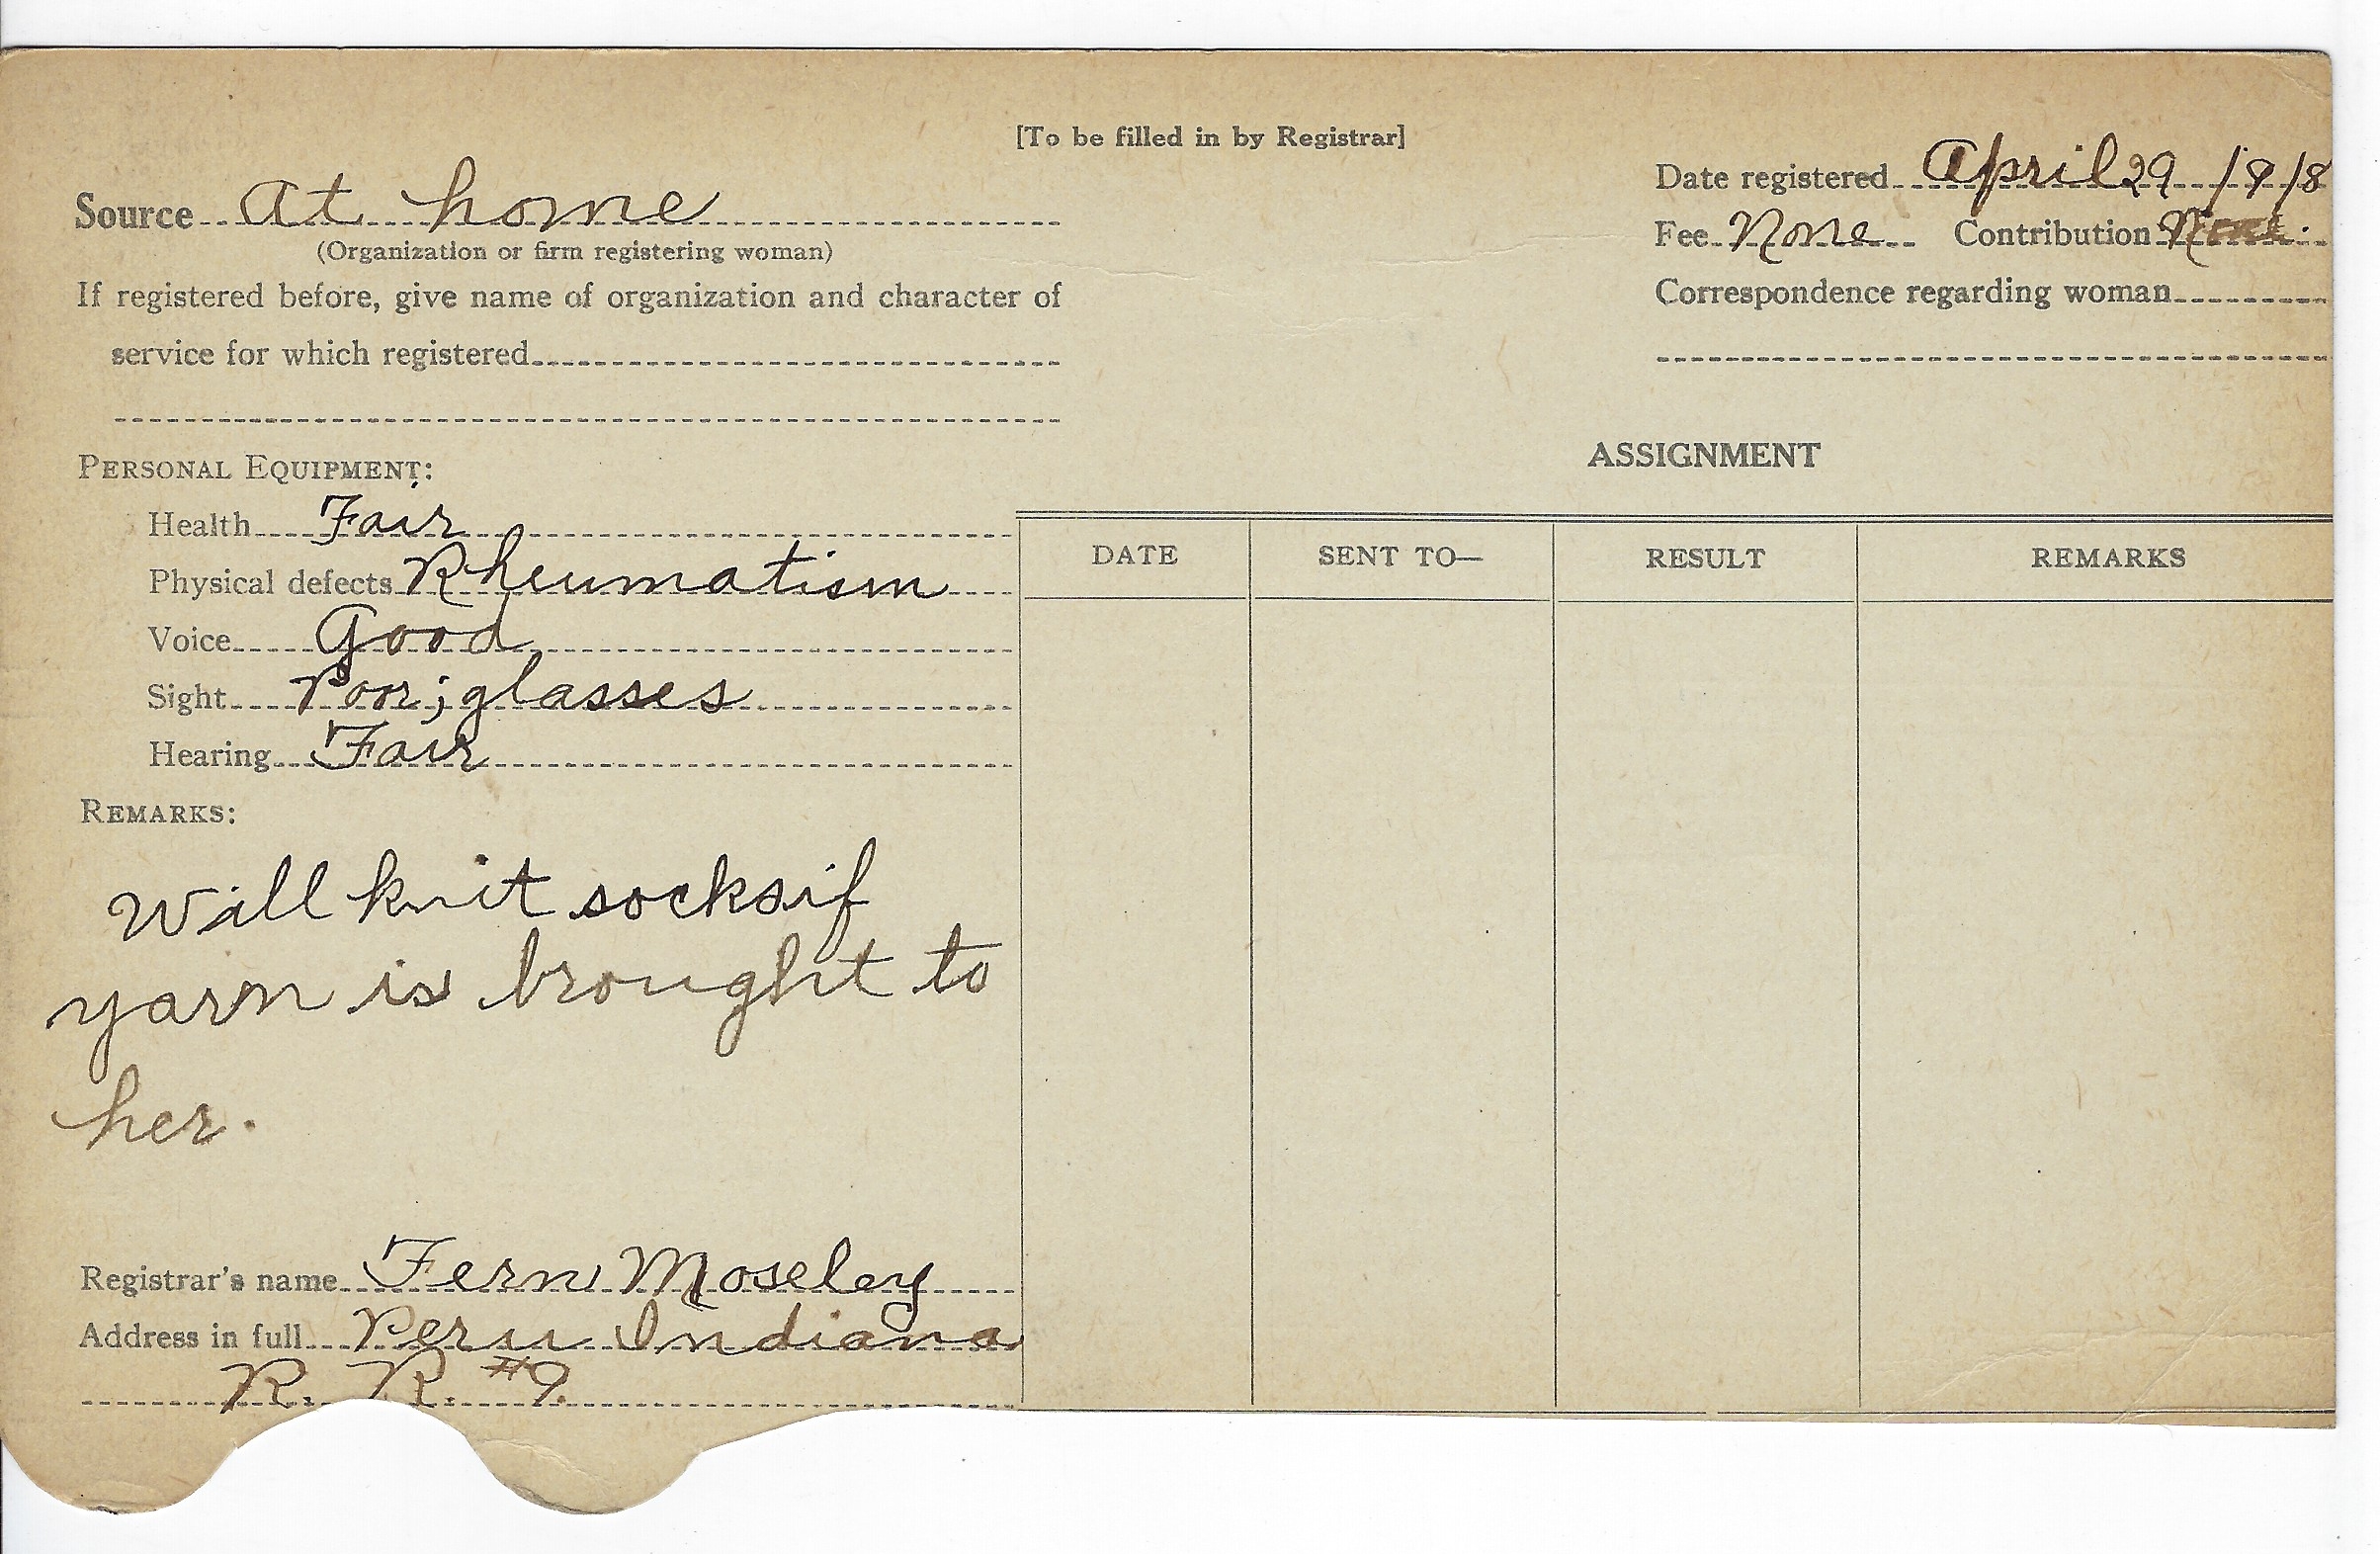 [To be filled in by Registrar]
Source At home
(Organization or firm registering woman)
If registered before, give name of organization and character of
service for which registered
Date registered April 29 1918
Fee None Contribution None
Correspondence regarding woman
PERSONAL EQUIPMENT:
Health Fair
Physical defects Rheumatism
Voice Good
Sight Poor; glasses
Hearing Fair
REMARKS:
Will knit socks if
yarn is brought to
her.
Registrar's name Fern Moseley
Address in full Peru Indiana
R. R. #9.
ASSIGNMENT
DATE SENT TO— RESULT REMARKS